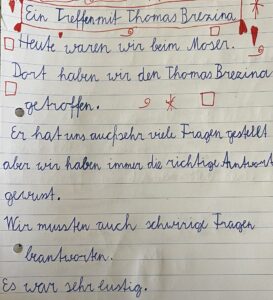 Ein Treffen mit Thomas Brezina
Heute waren wir beim Moser.
Dort haben wir den Thomas Brezina
getroffen.
Er hat uns auch sehr viele Fragen gestellt
aber wir haben immer die richtige Antwort
gewust.
Wir mussten auch schwirige Fragen
beantworten.
Es war sehr lustig.